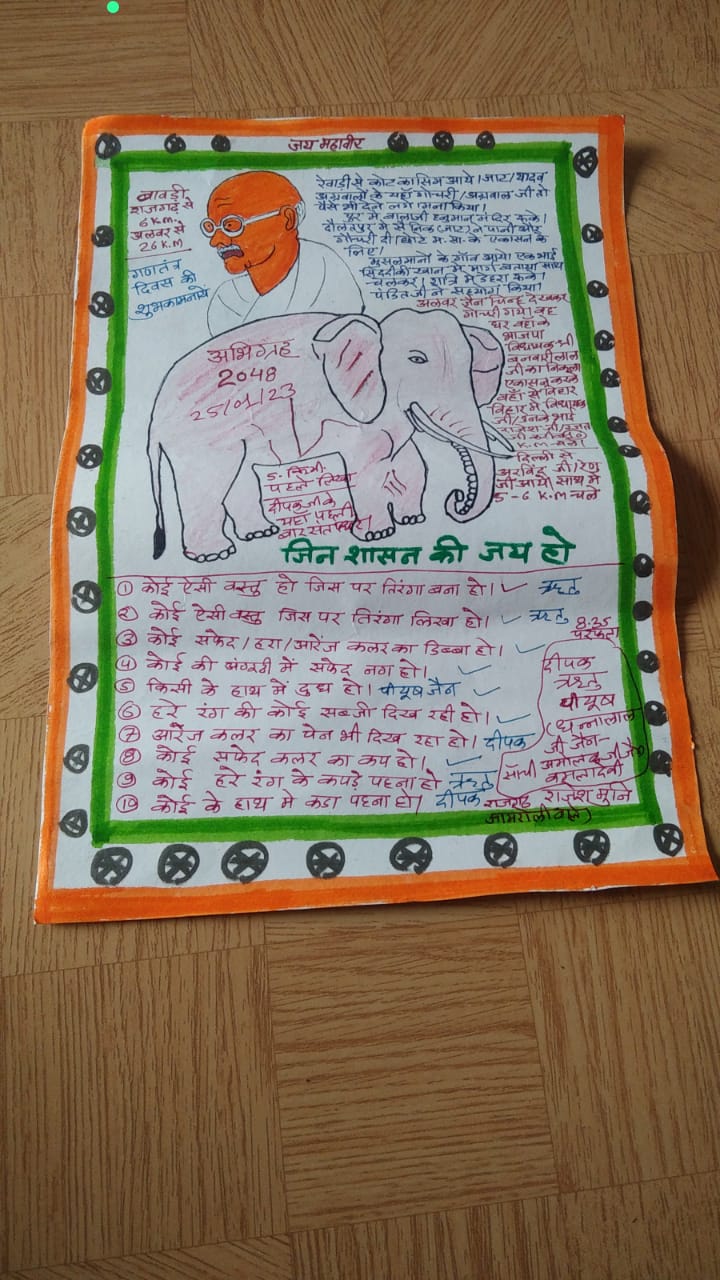 जय महावीर
बावड़ी
राजगढ़ से
6 K.M.
अलवर से
26 K.M
गणतंत्र
दिवस की
शुभकामनायें
रेवाड़ी से कोट कासिम आये। जाट/यादव
अग्रवालों के यहाँ गोचरी/अग्रवाल जी तो
पैसे भी देने लगे मना किया।
में बालाजी हनुमान मंदिर रुके।
दौलतपुर में सैनिक (जाट) ने पानी और
गोचरी दी छोटे म.सा. के एकासन के
लिए।
मुसलमानों के गाँव आये। एक भाई
सिद्दीकी खान ने मार्ग बताया साथ
चलकर। रात्रि में डेहरा रुके।
पंडित जी ने सहयोग किया।
अलवर जैन चिन्ह देखकर
गोचरी गये। वह
घर वहाँ के
भाजपा
विधायक श्री
बनवारीलाल
जी का निकला
एकासन करके
वहाँ से विहार
विहार में विधायक
जी/उनके भाई
K.M-चले।
दिल्ली से
अरविंद जी/रेणु
जी आये। साथ में
5-6 K.M चले
अभिग्रह
2048
25/01/23
5. किमी.
पहले लिखा
दीपक जी के
यहाँ पहली
बार
जिन शासन की जय हो
① कोई ऐसी वस्तु हो जिस पर तिरंगा बना हो। ✓ ऋतु
② कोई ऐसी वस्तु जिस पर तिरंगा लिखा हो। ✓ ऋतु
③ कोई सफेद/हरा/आरेंज कलर का डिब्बा हो। ✓
8:35
पर फला
④ कोई की अंगूठी में सफेद नग हो। ✓
⑤ किसी के हाथ में दुध हो। पीयूष जैन ✓
⑥ हरे रंग की कोई सब्जी दिख रही हो। ✓
⑦ आरेंज कलर का पेन भी दिख रहा हो। दीपक
⑧ कोई सफेद कलर का कप हो। ✓
⑨ कोई हरे रंग के कपड़े पहना हो ऋतु
⑩ कोई के हाथ मे कडा पहना हो। दीपक
दीपक
ऋतु
पीयूष
(धन्नालाल
जी जैन-
सौंपी अमोलक जी जैन
कमलादेवी
राजगढ़ राजेश मुनि